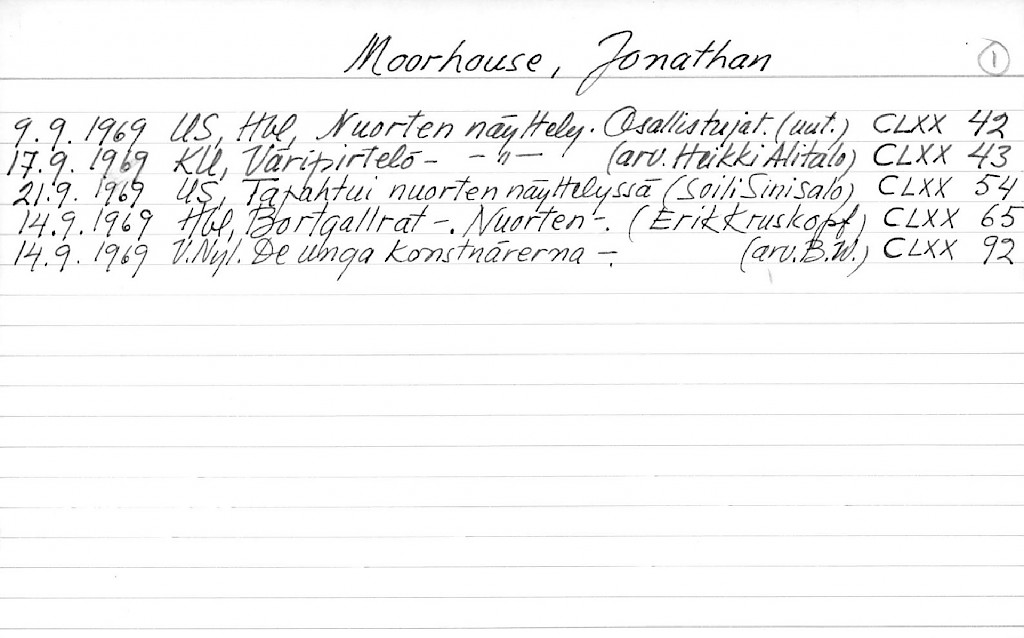 Moorhouse, Jonathan 1
9.9.1969 US, Hbl, Nuorten näyttely. Osallistujat. (uut.) CLXX 42
17.9.1969 KU, Väripirtelö – – " – (arv. Heikki Alitalo) CLXX 43
21.9.1969 US, Tapahtui nuorten näyttelyssä (Soili Sinisalo) CLXX 54
14.9.1969 Hbl, Bortgallrat –. Nuorten –. (Erik Kruskopf) CLXX 65
14.9.1969 V.Nyl. De unga konstnärerna –. (arv. B.W.) CLXX 92